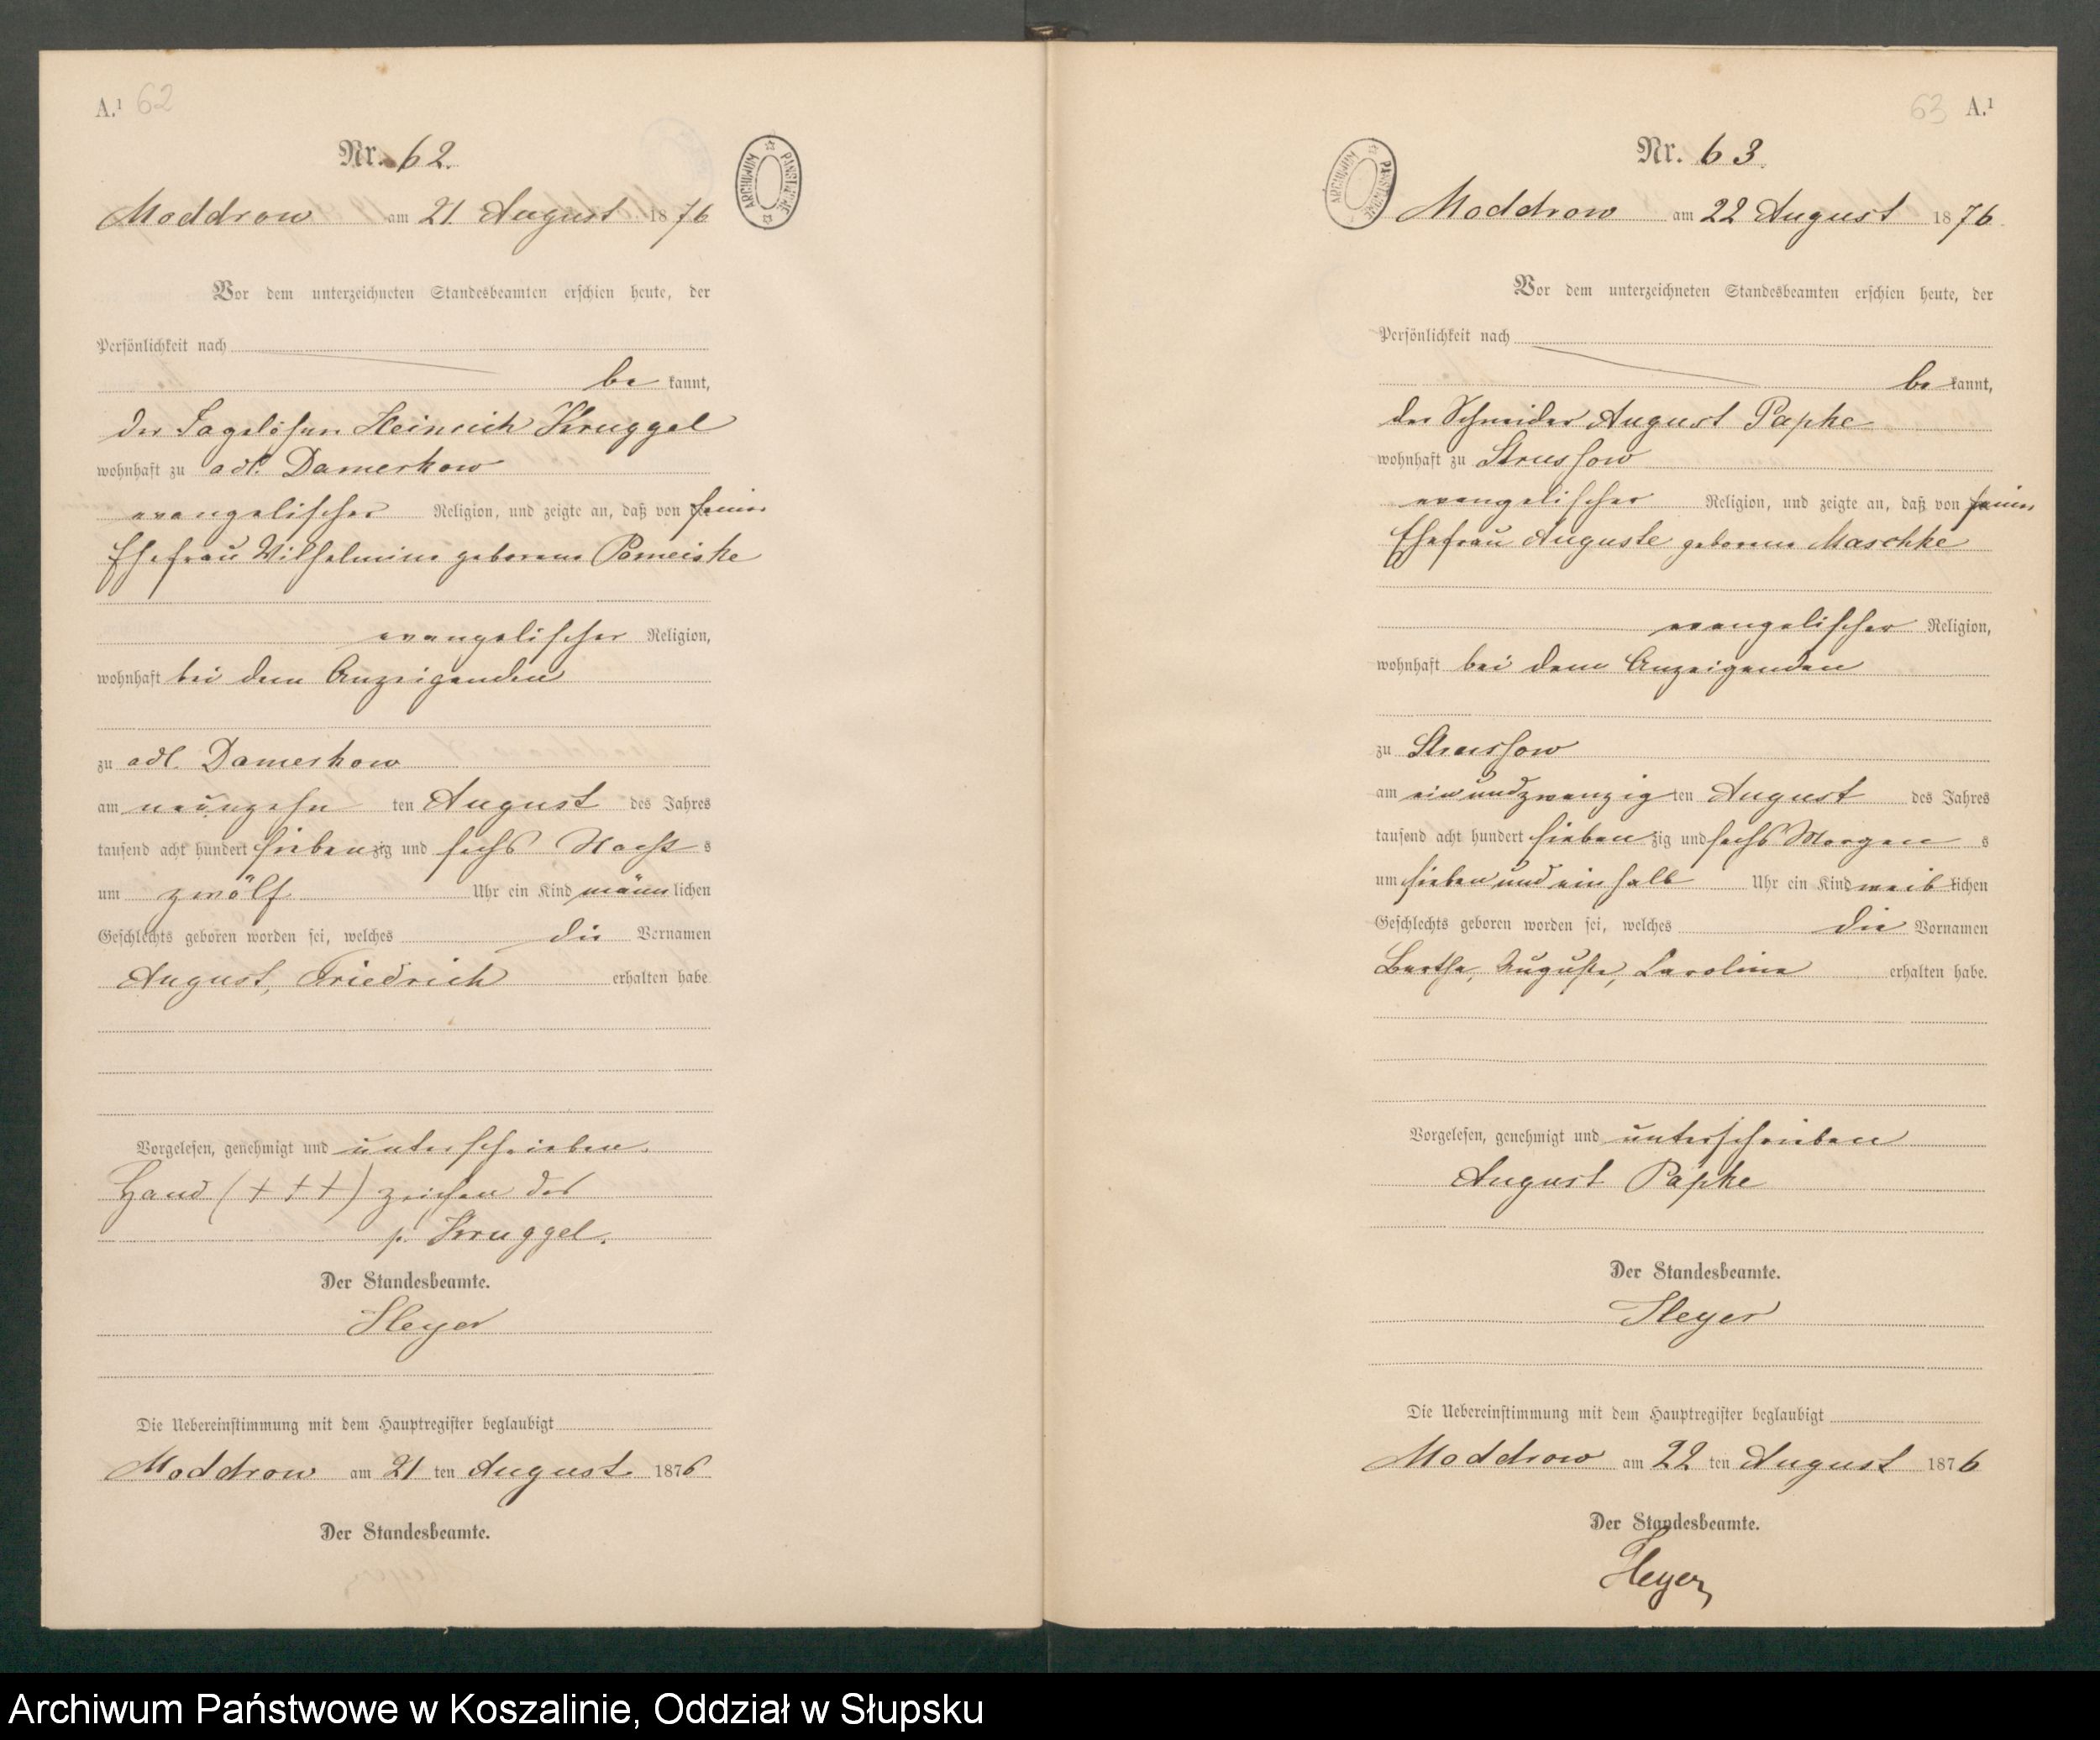 A.¹ 62
Nr. 62.
Moddrow am 21. August 1876
ARCHIWUM PAŃSTWOWE
Vor dem unterzeichneten Standesbeamten erschien heute, der
Persönlichkeit nach
be kannt,
der Tagelöhner Heinrich Kruggel
wohnhaft zu adl. Damerkow
evangelischer Religion, und zeigte an, daß von seiner
Ehefrau Wilhelmine geborene Pomeiske
evangelischer Religion,
wohnhaft bei dem Anzeigenden
zu adl. Damerkow
am neunzehn ten August des Jahres
tausend acht hundert sieben zig und sechs Nachts
um zwölf Uhr ein Kind männ lichen
Geschlechts geboren worden sei, welches die Vornamen
August, Friedrich erhalten habe
Vorgelesen, genehmigt und unterschrieben.
Hand (+++) zeichen des
p. Kruggel.
Der Standesbeamte.
Heyer
Die Uebereinstimmung mit dem Hauptregister beglaubigt
Moddrow am 21 ten August 1876
Der Standesbeamte.
63 A.¹
Nr. 63.
ARCHIWUM PAŃSTWOWE
Moddrow am 22 August 1876.
Vor dem unterzeichneten Standesbeamten erschien heute, der
Persönlichkeit nach
be kannt,
der Schneider August Papke
wohnhaft zu Strussow
evangelischer Religion, und zeigte an, daß von seiner
Ehefrau Auguste geborene Maschke
evangelischer Religion,
wohnhaft bei dem Anzeigenden
zu Strussow
am ein und zwanzig ten August des Jahres
tausend acht hundert sieben zig und sechs Morgen s
um sieben und ein halb Uhr ein Kind weib lichen
Geschlechts geboren worden sei, welches die Vornamen
Bertha, Auguste, Caroline erhalten habe.
Vorgelesen, genehmigt und unterschrieben
August Papke
Der Standesbeamte.
Heyer
Die Uebereinstimmung mit dem Hauptregister beglaubigt
Moddrow am 22 ten August 1876
Der Standesbeamte.
Heyer
Archiwum Państwowe w Koszalinie, Oddział w Słupsku